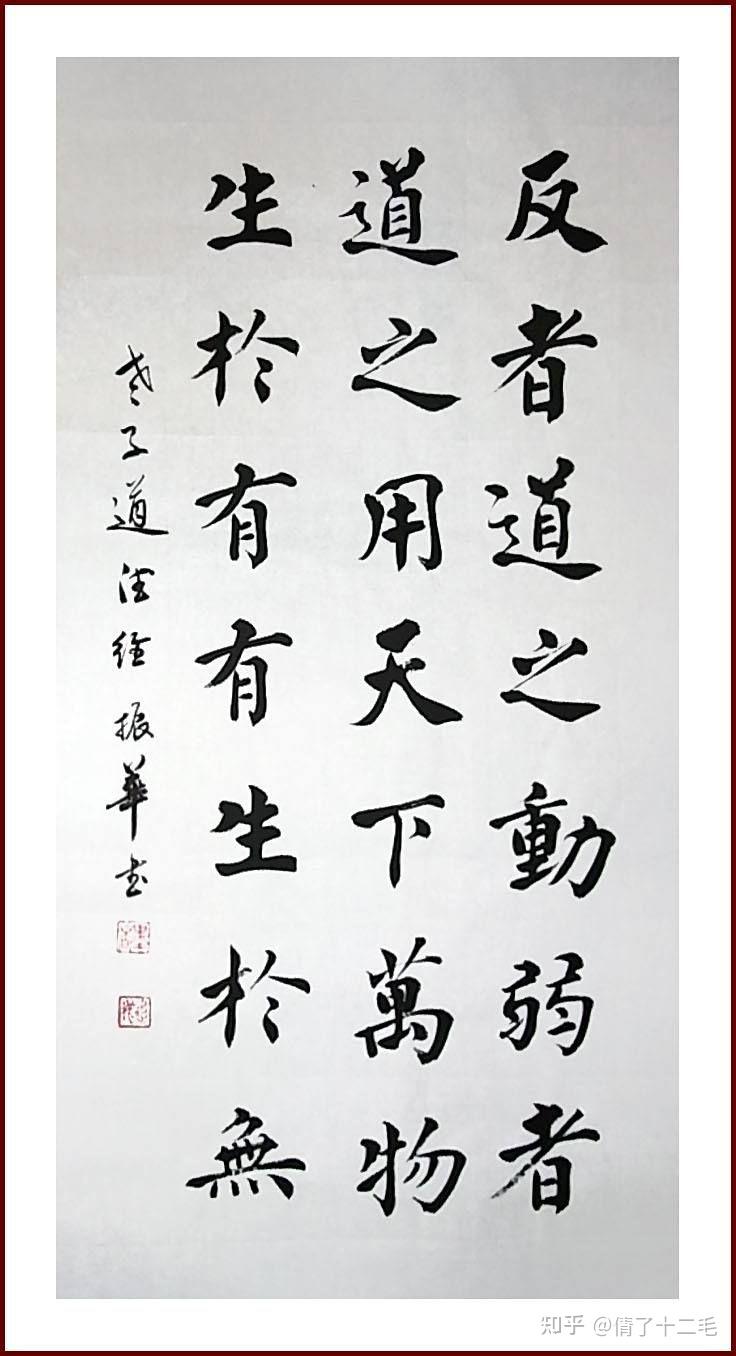 反者道之動弱者
道之用天下萬物
生於有有生於無
老子道德經 振華書
知乎 @倩了十二毛